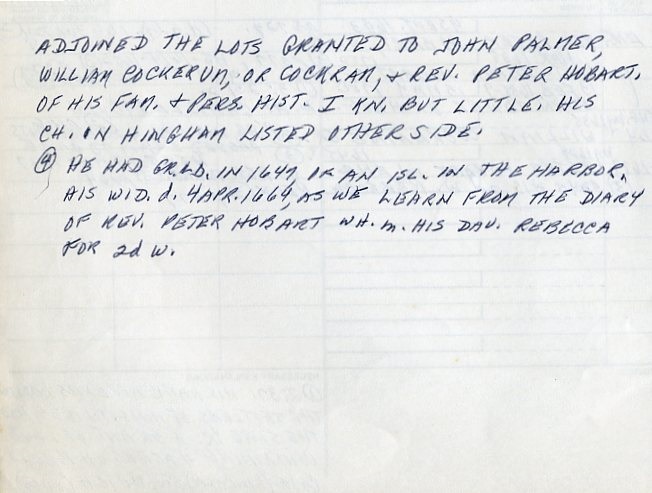 ADJOINED THE LOTS GRANTED TO JOHN PALMER,
WILLIAM COCKERUM, OR COCKRAM, & REV. PETER HOBART.
OF HIS FAM. & PERS. HIST. I KN. BUT LITTLE. HIS
CH. IN HINGHAM LISTED OTHER SIDE.
④ HE HAD GR. LD. IN 1647, OF AN ISL. IN THE HARBOR.
HIS WID. d. 4 APR. 1664, AS WE LEARN FROM THE DIARY
OF REV. PETER HOBART WH. m. HIS DAU. REBECCA
FOR 2d W.